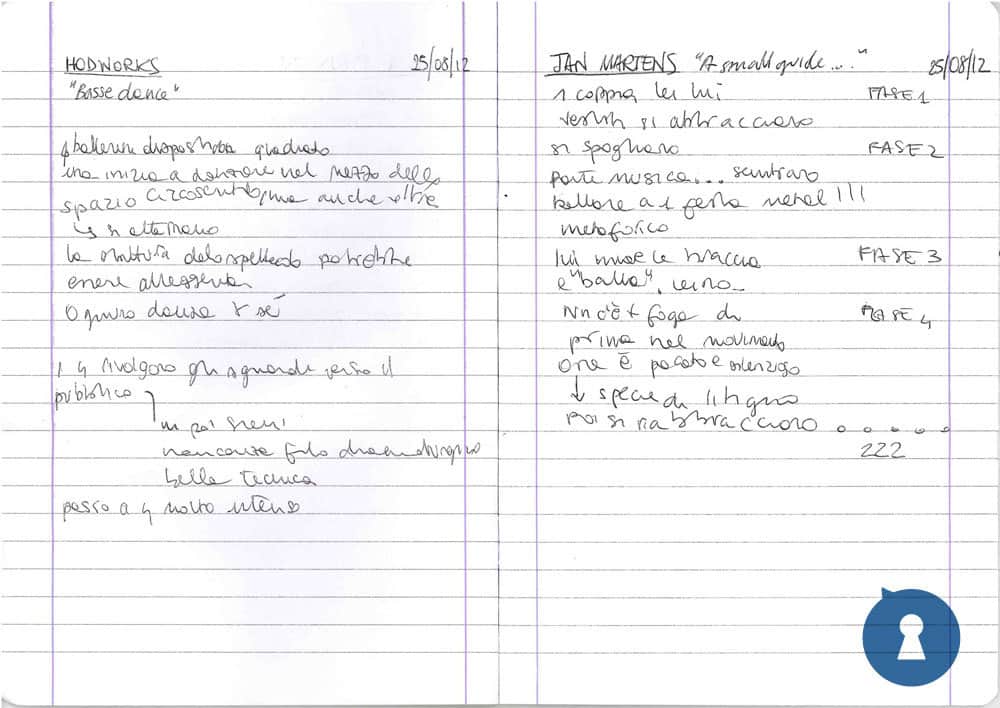 HODWORKS 25/08/12
"Basse dance"
4 ballerini disposti a quadrato
una inizia a danzare nel mezzo dello
spazio circoscritto, ma anche oltre
↳ si alternano
la struttura dello spettacolo potrebbe
essere alleggerita
o puro danza x sé
I 4 rivolgono gli sguardi verso il
pubblico
un po' strani
mancanza filo drammaturgico
bella tecnica
passo a 4 molto intenso
JAN MARTENS "A small guide..." 25/08/12
1 coppia lei lui FASE 1
vestiti si abbracciano
si spogliano FASE 2
parte musica... sembrano
ballare a 1 festa metal !!!
metaforico
lui muove le braccia FASE 3
e "balla", lei no_
Nn c'è + foga di FASE 4
prima nel movimento
ora è pacato e silenzioso
↓ specie di litigio
poi si riabbracciano . . . . .
222